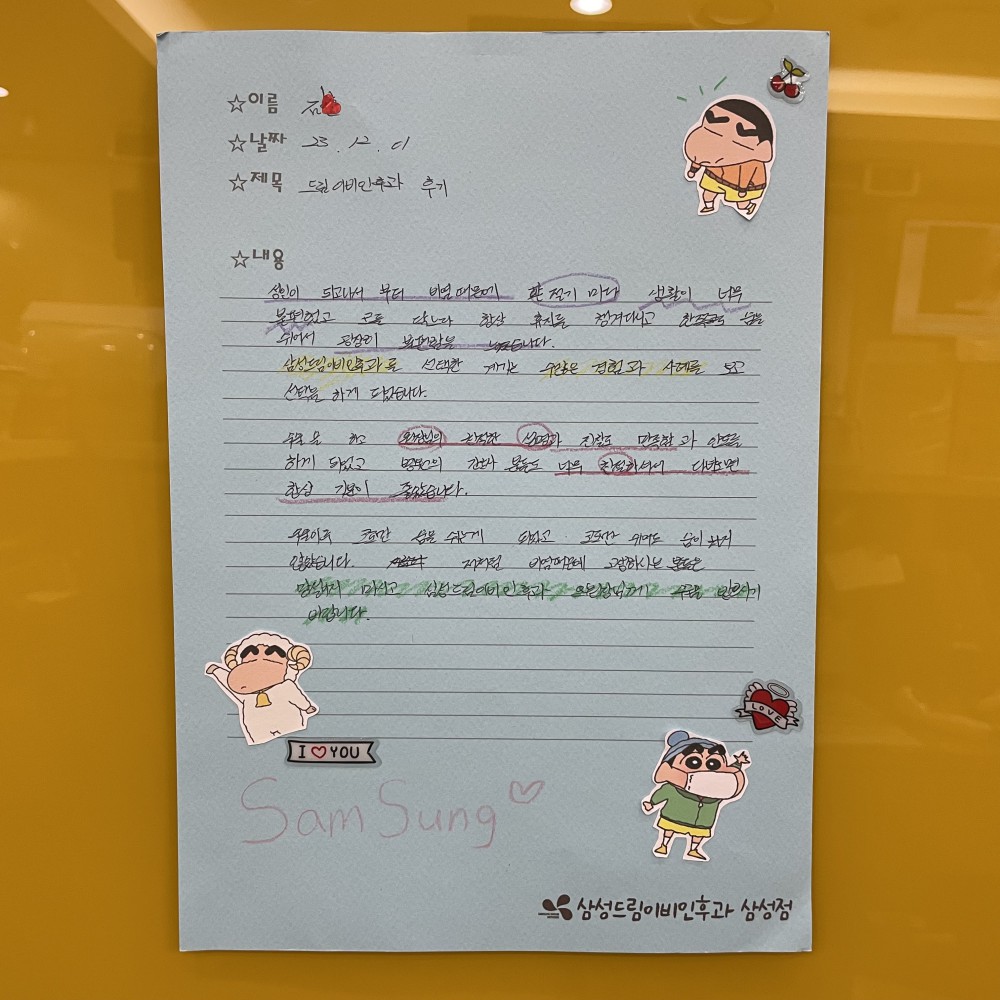 ☆이름 김
☆날짜 23.12.01
☆제목 드림이비인후과 후기
☆내용
성인이 되고나서 부터 비염때문에 환절기 마다 생활이 너무
불편했고 코를 닦느라 항상 휴지를 챙겨다니고 숨을
쉬어서 굉장히 불편함을
삼성드림이비인후과를 선택한 계기는 수많은 경험과 사례를 보고
선택을 하게 되었습니다.
수술을 하고 원장님의 친절한 설명과 진찰도 만족함과 안도를
하게 되었고 병원의 간호사 분들도 너무 친절하셔서 다닐때면
항상 기분이 좋았습니다.
수술이후 코로만 숨을 쉬게 되었고 코로만 쉬어도 숨이 차지
않았습니다. 저처럼 비염때문에 고생하시는 분들은
망설이지 마시고 삼성드림이비인후과 수술을 받으시기
바랍니다.
I ♡ YOU
LOVE
SamSung♡
삼성드림이비인후과 삼성점